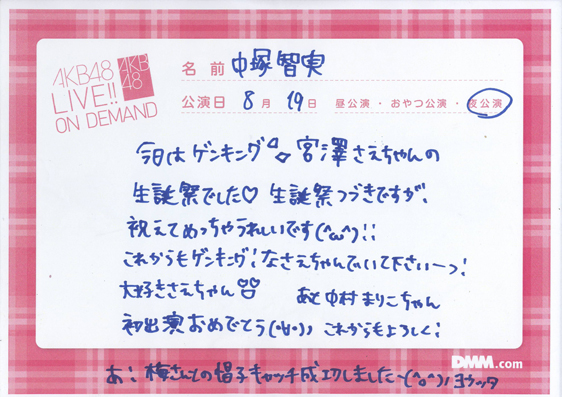 AKB48
LIVE!!
ON DEMAND
AKB
48
名前 中塚智実
公演日 8月 19日 昼公演・おやつ公演・夜公演
今日はゲンキング 宮澤さえちゃんの
生誕祭でした♡ 生誕祭つづきですが、
祝えてめっちゃうれしいです(^ω^)!!
これからもゲンキング!なさえちゃんでいて下さいーっ!
大好きさえちゃん あと中村まりこちゃん
初出演おめでとう(°∀°)ノ これからもよろしく!
DMM.com
あ! 梅さんとの帽子キャッチ成功しました~(^o^)ノヨカッタ